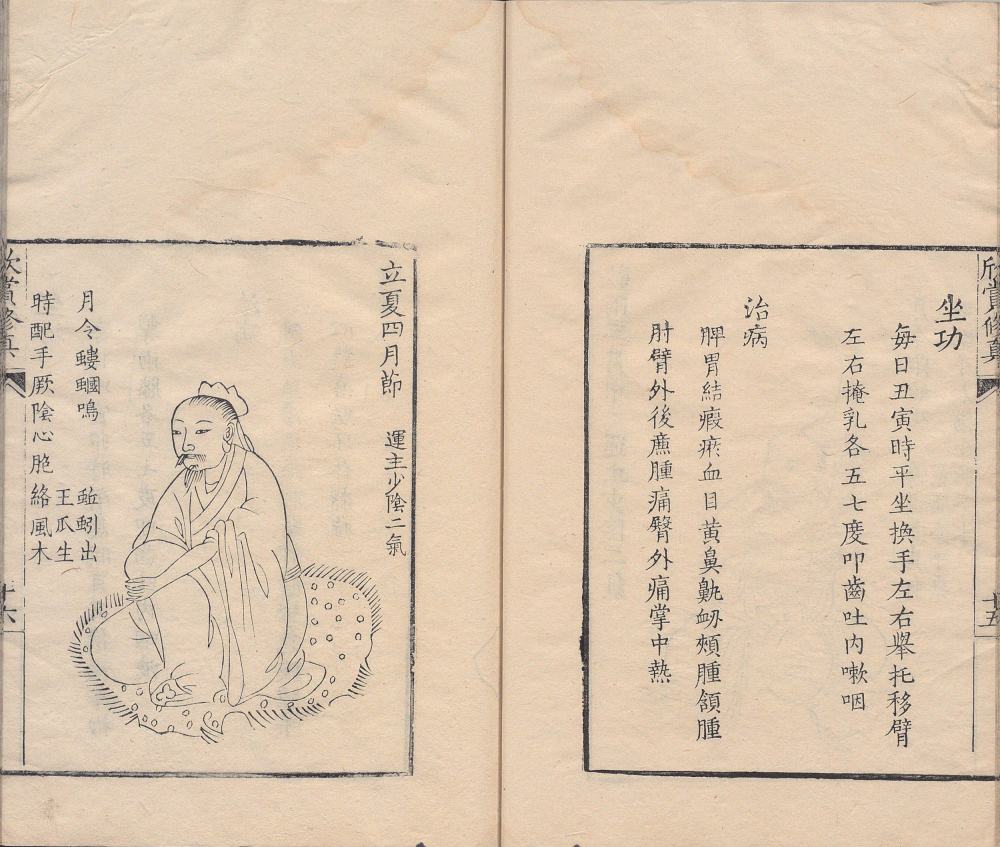 欣賞修真
十五
坐功
每日丑寅時平坐換手左右舉托移臂
左右掩乳各五七度叩齒吐內嗽咽
治病
脾胃結瘕瘀血目黃鼻鼽衂頰腫頷腫
肘臂外後廉腫痛臂外痛掌中熱
立夏四月節
運主少陰二氣
月令螻蟈鳴
蚯蚓出
王瓜生
時配手厥陰心胞絡風木
欣賞修真
十六